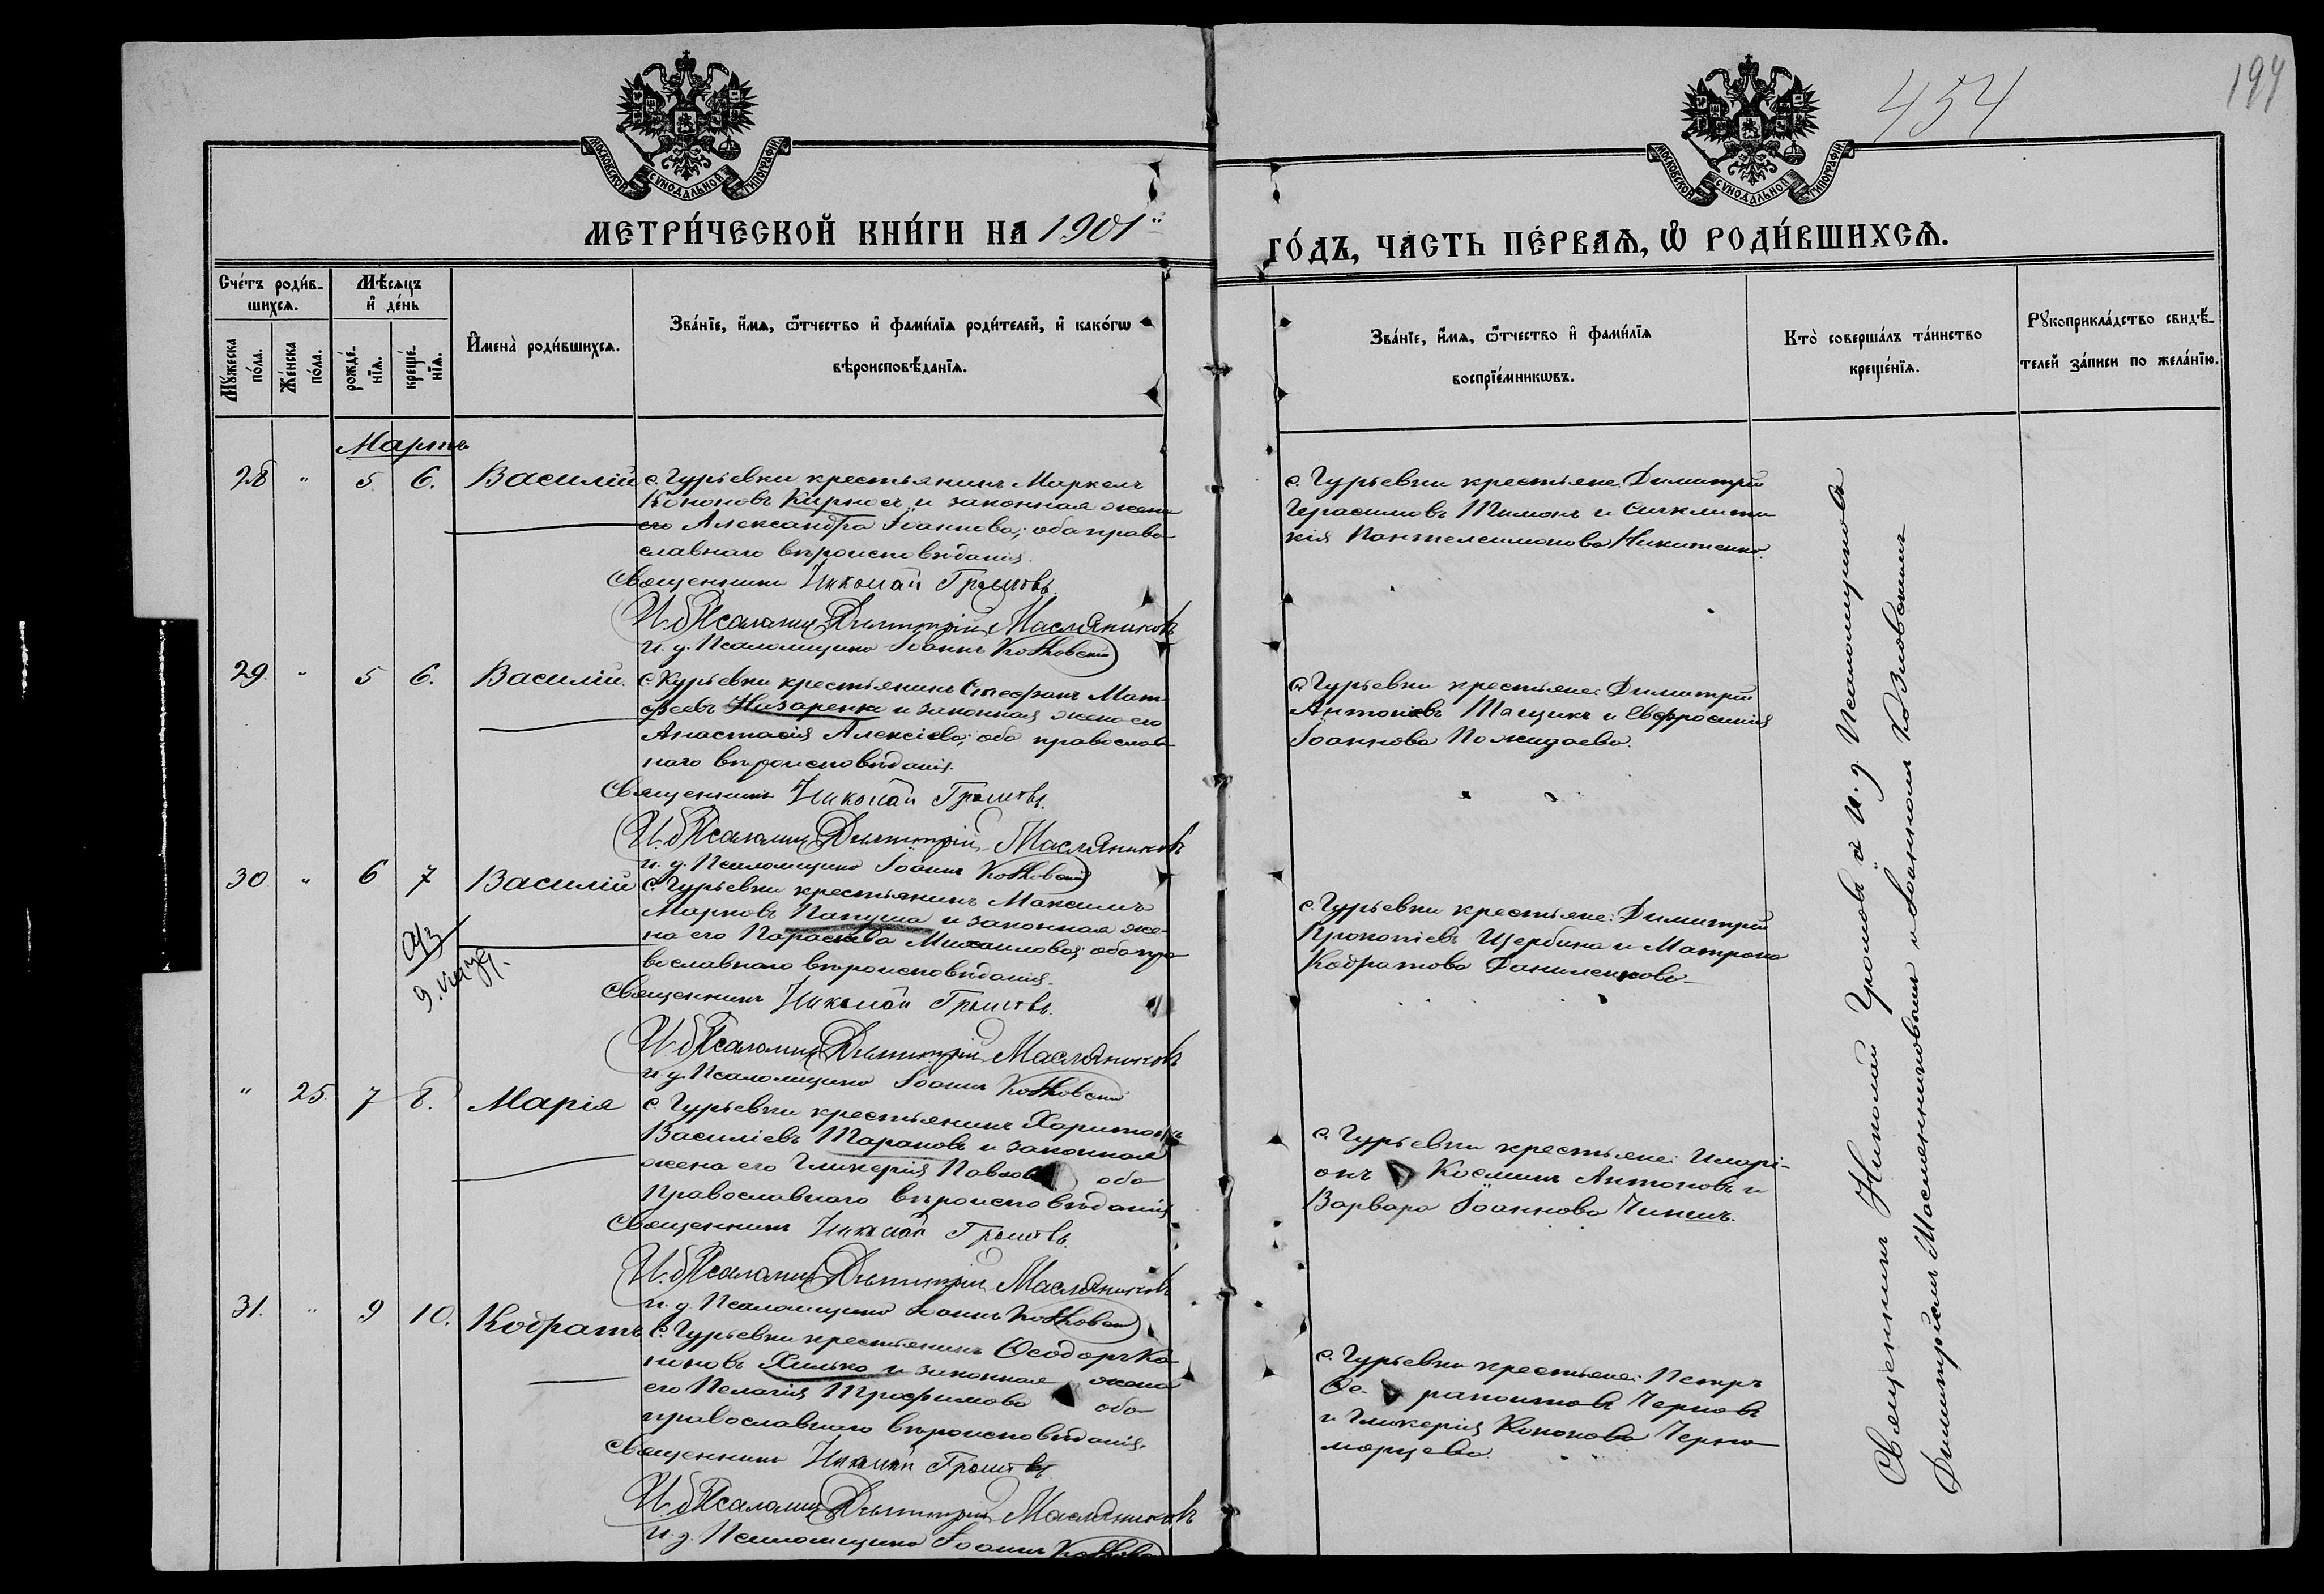 454
194
МОСКОВСКОЙ СѴНОДАЛЬНОЙ ТИПОГРАФІИ
МОСКОВСКОЙ СѴНОДАЛЬНОЙ ТИПОГРАФІИ
МЕТРИ́ЧЕСКОЙ КНИ́ГИ НА 1901й
ГО́ДЪ, ЧА́СТЬ ПЕ́РВАѦ, Ѡ҆ РОДИ́ВШИХСѦ.
Сче́тъ роди́в-
шихсѧ.
Мꙋ́жеска по́ла.
Же́нска по́ла.
Мѣ́сѧцъ и҆ де́нь
рожде́-
нїѧ.
креще́-
нїѧ.
И҆мена̀ роди́вшихсѧ.
Зва́нїе, и҆́мѧ, ѻ҆́тчество и҆ фами́лїѧ роди́телей, и҆ како́гѡ
вѣроисповѣ́данїѧ.
Зва́нїе, и҆́мѧ, ѻ҆́тчество и҆ фами́лїѧ
воспрїе́мникѡвъ.
Кто̀ соверша́лъ та́инство
креще́нїѧ.
Рꙋкоприкла́дство свидѣ́-
телей за́писи по жела́нїю.
Мартъ
28 " 5. 6. Василій
с. Гурьевки крестьянинъ Маркелъ
Кононовъ Кирносъ и законная жена
его Александра Іоаннова; оба право
славнаго вѣроисповѣданія.
Священникъ Николай Громовъ.
И. д. Псаломщ. Димитрій Масляниковъ
и. д. Псаломщика Іоаннъ Козловскій
с. Гурьевки крестьяне: Димитрій
Герасимовъ Тимонъ и Синклити
кія Пантелеимонова Никитенко.
29. " 5 6. Василій.
с. Гурьевки крестьянинъ Стефанъ Мат
феевъ Назаренко и законная жена его
Анастасія Алексіева; оба православ
наго вѣроисповѣданія.
Священникъ Николай Громовъ.
И. д. Псаломщ. Димитрій Масляниковъ
и. д. Псаломщика Іоаннъ Козловскій
с. Гурьевки крестьяне: Димитрій
Антоновъ Тащикъ и Евфросинія
Іоаннова Пожидаева.
30. " 6 7 Василій
с. Гурьевки крестьянинъ Максимъ
Марковъ Папуша и законная же-
на его Параскева Михаилова; оба пра
вославнаго вѣроисповѣданія.
Священникъ Николай Громовъ.
И. д. Псаломщ. Димитрій Масляниковъ
и. д. Псаломщика Іоаннъ Козловскій
с. Гурьевки крестьяне: Димитрій
Прокопіевъ Щербина и Матрона
Кодратова Даниленкова
" 25. 7 8. Марія
с. Гурьевки крестьянинъ Харитонъ
Василіевъ Тарановъ и законная
жена его Гликерія Павлова оба
православнаго вѣроисповѣданія
Священникъ Николай Громовъ.
И. д. Псаломщ. Димитрій Масляниковъ
и. д. Псаломщика Іоаннъ Козловскій
с. Гурьевки крестьяне: Иларі-
онъ Косминъ Антоновъ и
Варвара Іоаннова Чинчъ.
31. " 9 10. Кодратъ
с. Гурьевки крестьянинъ Ѳеодоръ Ко
ноновъ Хилько и законная жена
его Пелагія Трофимова оба
православнаго вѣроисповѣданія.
Священникъ Николай Громовъ
И. д. Псаломщ. Димитрій Масляниковъ
и. д. Псаломщика Іоаннъ
с. Гурьевки крестьяне: Петръ
Черновъ
и Гликерія Кононова Черно
морцева.
Священникъ Николай Громовъ съ и. д. Псаломщиковъ
Димитріемъ Маслениковымъ и Іоанномъ Козловскимъ